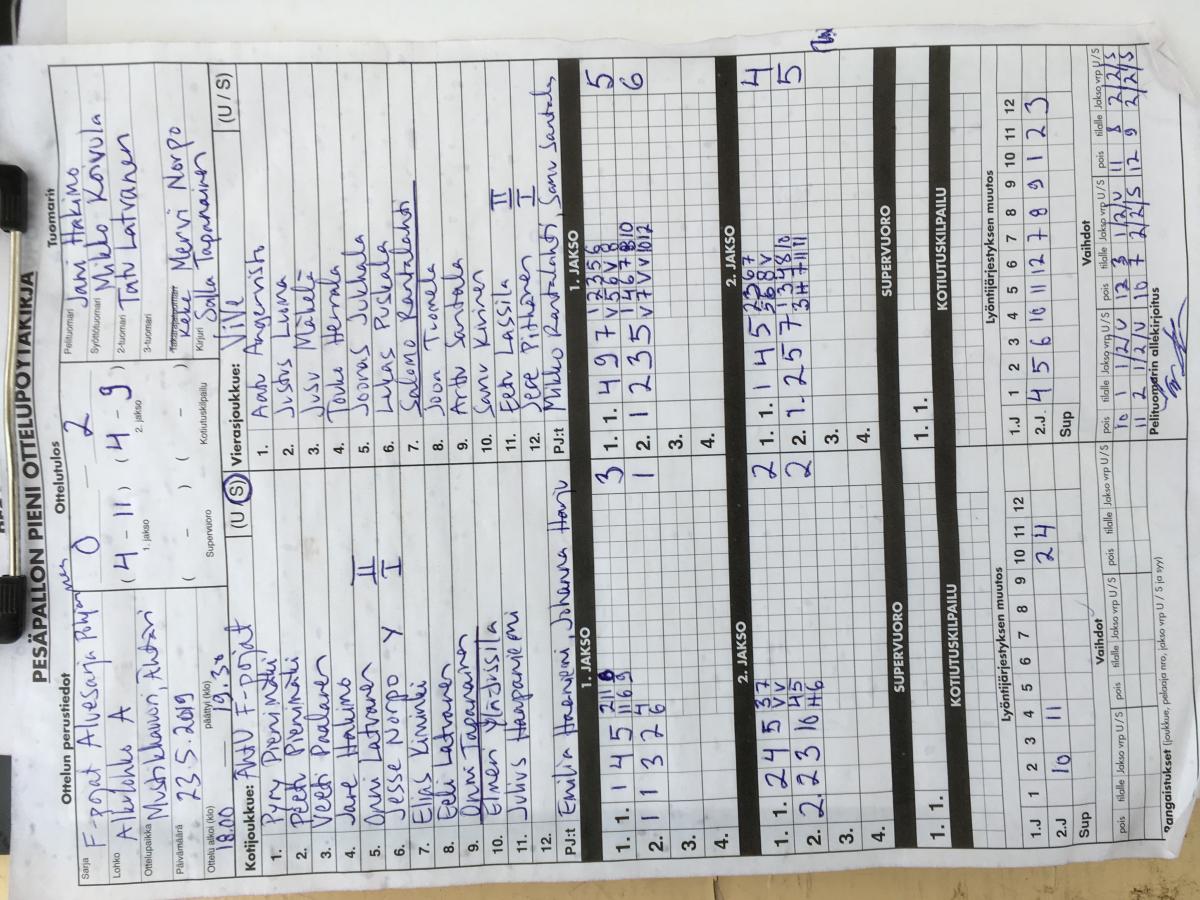 PESÄPALLON PIENI OTTELUPÖYTÄKIRJA
Ottelun perustiedot
Ottelutulos
Tuomarit
Sarja F-pojat Aluesarja Pohjanmaa
Lohko Alkulohko A
Ottelupaikka Mustikkavuori, Ähtäri
Päivämäärä 23.5.2019
Ottelu alkoi (klo) 18.00 päättyi (klo) 19.30
0 — 2
( 4 - 11 ) ( 4 - 9 )
1. jakso 2. jakso
( - ) ( - )
Supervuoro Kotiutuskilpailu
Pelituomari Jani Hakimo
Syöttötuomari Mikko Koivula
2-tuomari Tatu Latvanen
3-tuomari
Takarajatuomari Keke Mervi Norpo
Kirjuri Salla Tapanainen
Kotijoukkue: ÄhtU F-pojat (U / S)
1. Pyry Pienimäki
2. Peetu Pienimäki
3. Veeti Paalanen
4. Jare Hakimo
5. Onni Latvanen II
6. Jesse Norpo Y I
7. Elias Kininki
8. Eeli Latvanen
9. Onni Tapanainen
10. Eimen
11. Julius Haapaniemi
12.
PJ:t Emilia Haeniemi, Johanna Harju
Vierasjoukkue: Ville (U / S)
1. Aatu Angervisto
2. Justus Luoma
3. Jusu Mäkelä
4. Touko Herrala
5. Joonas Jukkala
6. Luka Puskala
7. Salomo Rantalahti
8. Joon Tuomela
9. Arttu Santala
10. Sanu Kivinen
11. Eetu Lassila II
12. Jere Pitkänen I
PJ:t Mikko Rantalahti, Samu Santala
1. JAKSO
1. 1. 1 4 5 3
2. 1 3 2 1
3.
4.
1. JAKSO
1. 1. 4 9 7 5
2. 1 2 3 5 6
3.
4.
2. JAKSO
1. 1. 2 4 5 2
2. 2 3 10 2
3.
4.
2. JAKSO
1. 1. 1 4 5 4
2. 1. 2 5 7 5
3.
4.
SUPERVUORO
1. 1.
SUPERVUORO
1. 1.
KOTIUTUSKILPAILU
1. 1.
KOTIUTUSKILPAILU
1. 1.
Lyöntijärjestyksen muutos
1 2 3 4 5 6 7 8 9 10 11 12
1.J
2.J 10 11 2 4
Sup
Lyöntijärjestyksen muutos
1 2 3 4 5 6 7 8 9 10 11 12
1.J
2.J. 4 5 6 10 11 12 7 8 9 1 2 3
Sup
Vaihdot
pois tilalle Jakso vrp U / S pois tilalle Jakso vrp U / S pois tilalle Jakso vrp U / S
Vaihdot
pois tilalle Jakso vrp U / S pois tilalle Jakso vrp U / S pois tilalle Jakso vrp U / S
10 1 1/2/U 12 3 1/2/U 11 8 2/2/S
11 2 1/2/U 10 7 2/2/S 12 9 2/2/S
Rangaistukset (joukkue, pelaaja nro, jakso vrp U / S ja syy)
Pelituomarin allekirjoitus